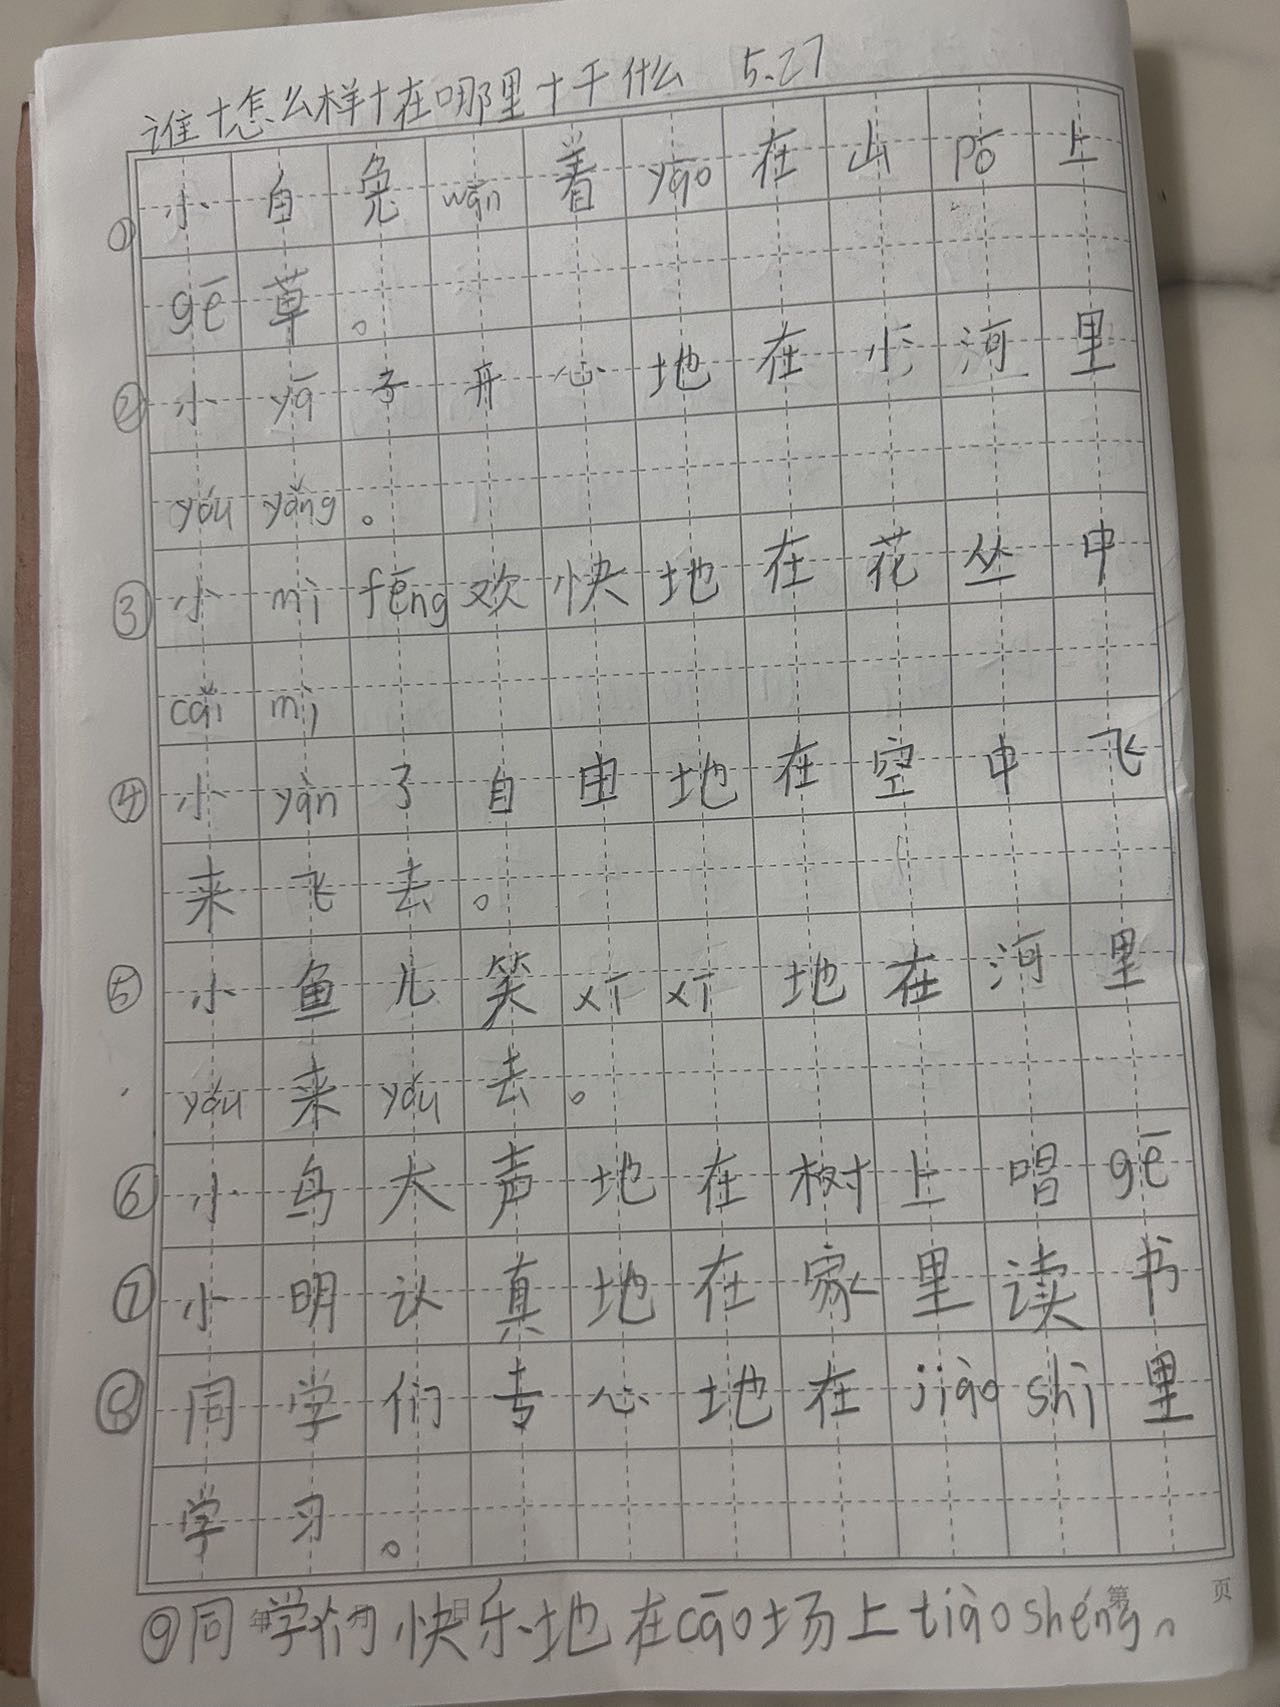 谁+怎么样+在哪里+干什么 5.27
① 小自兔wān着yāo在山pō上
gē草。
② 小yā子开心地在小河里
yóu yǎng。
③ 小mì fēng欢快地在花丛中
cǎi mì
④ 小yàn子自由地在空中飞
来飞去。
⑤ 小鱼儿笑xī xī地在河里
yóu来yóu去。
⑥ 小鸟大声地在树上唱gē
⑦ 小明认真地在家里读书
⑧ 同学们专心地在jiào shì里
学习。
第 页
⑨同学们快乐地在cāo场上tiào shéng。